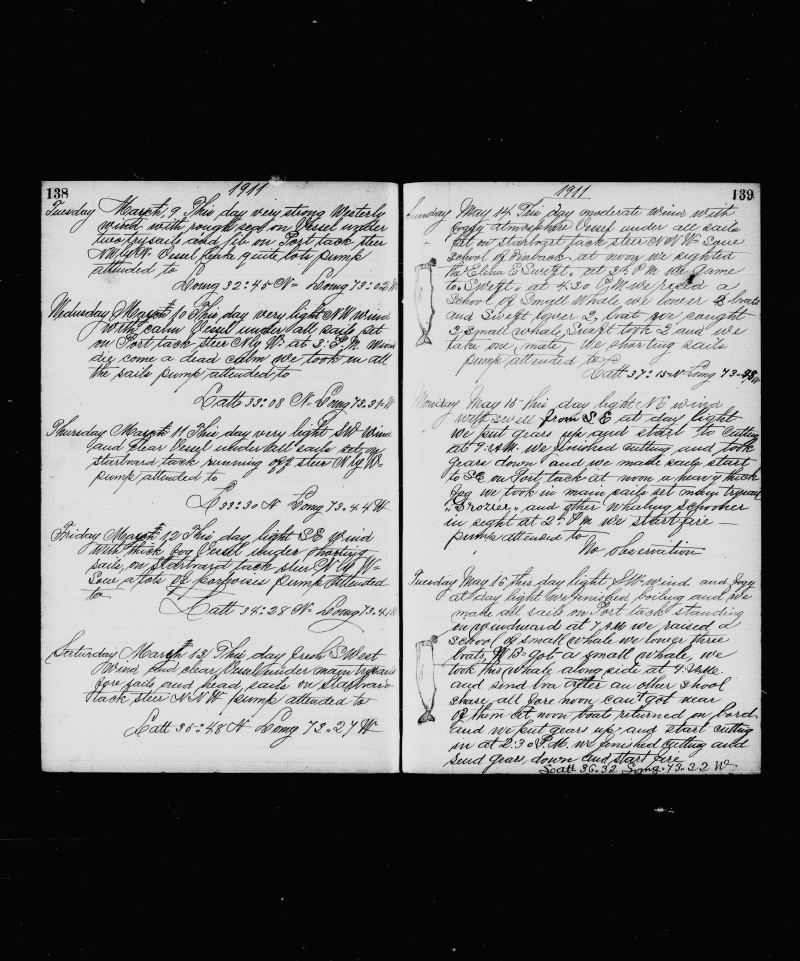 138
1911
Tuesday March 9 This day very strong Westerly
wind with rough sea on Vessel under
two trysails and jib on Port tack steer
NW by W Vessel quite lots pump
attended to
Long 32=45 N= Long 73=02 W
Wednesday March 10 This day very light NW wind
with calm Vessel under all sails set
on Port tack steer N by W= at 3= P.M. wind
die come a dead calm we took in all
the sails pump attended to
Latt 33=08 N= Long 73.31=W
Thursday March 11 This day very light SW wind
and clear Vessel under all sails set on
starboard tack running off steer N by W=
pump attended to
L 33=30 N Long 73.44 W
Friday March 12 This day light SE Wind
with thick fog Vessel under shorting
sails, on Starboard tack steer N by W=
Saw a lots of porpoises pump attended
to
Latt 34=28 N= Long 73.41 W
Saturday March 13 This day fresh S West
wind and clear Vessel under main trysail
fore sails and head sails on starboard
tack steer N N W pump attended to
Latt 35=48 N Long 73=27 W
1911
139
Sunday May 14 This day moderate wind with
foggy atmosphere Vessel under all sails
set on starboart tack steer N N W= Saw
school of Finback at noon we sighted
the Ellen E Swift. at 3 P M we Game
to. Swift. at 4=30 P.M. we resed a
School of Small Whale, we lower 3 boats
and Swift lower 2, boats we caught
3 small whale, Swift took 2 and we
take one, mate we shorting sails
pump attended to
Latt 37=15=N Long 73=48 W
Monday May 15 this day light N E wind
with swell from S E at day light
we put gears up and start to cutting
at 9=A.M. we finished cutting and took
gears down and we made sails start
to SE on Port tack at noon a heavy thick
fog we took in main sails set main trysail
and other whaling schooner
in sight at 2= P M we start fire—
pump attended to
No observation
Tuesday May 16 this day light SW wind and foggy
at day light we finished boiling and we
make all sails on Port tack standing
on windward at 7 A M we raised a
school of small whale we lower three
boats, W B= got a small whale, we
took this whale along side at 9=A.M.
and send boa after an other school
chase all fore noon can't got near
of them at noon boats returned on bord
and we put gears up and start cutting
in at 2=30 P.M. we finished cutting and
send gears down and start fire
Latt 36.32 Long. 73.32 W